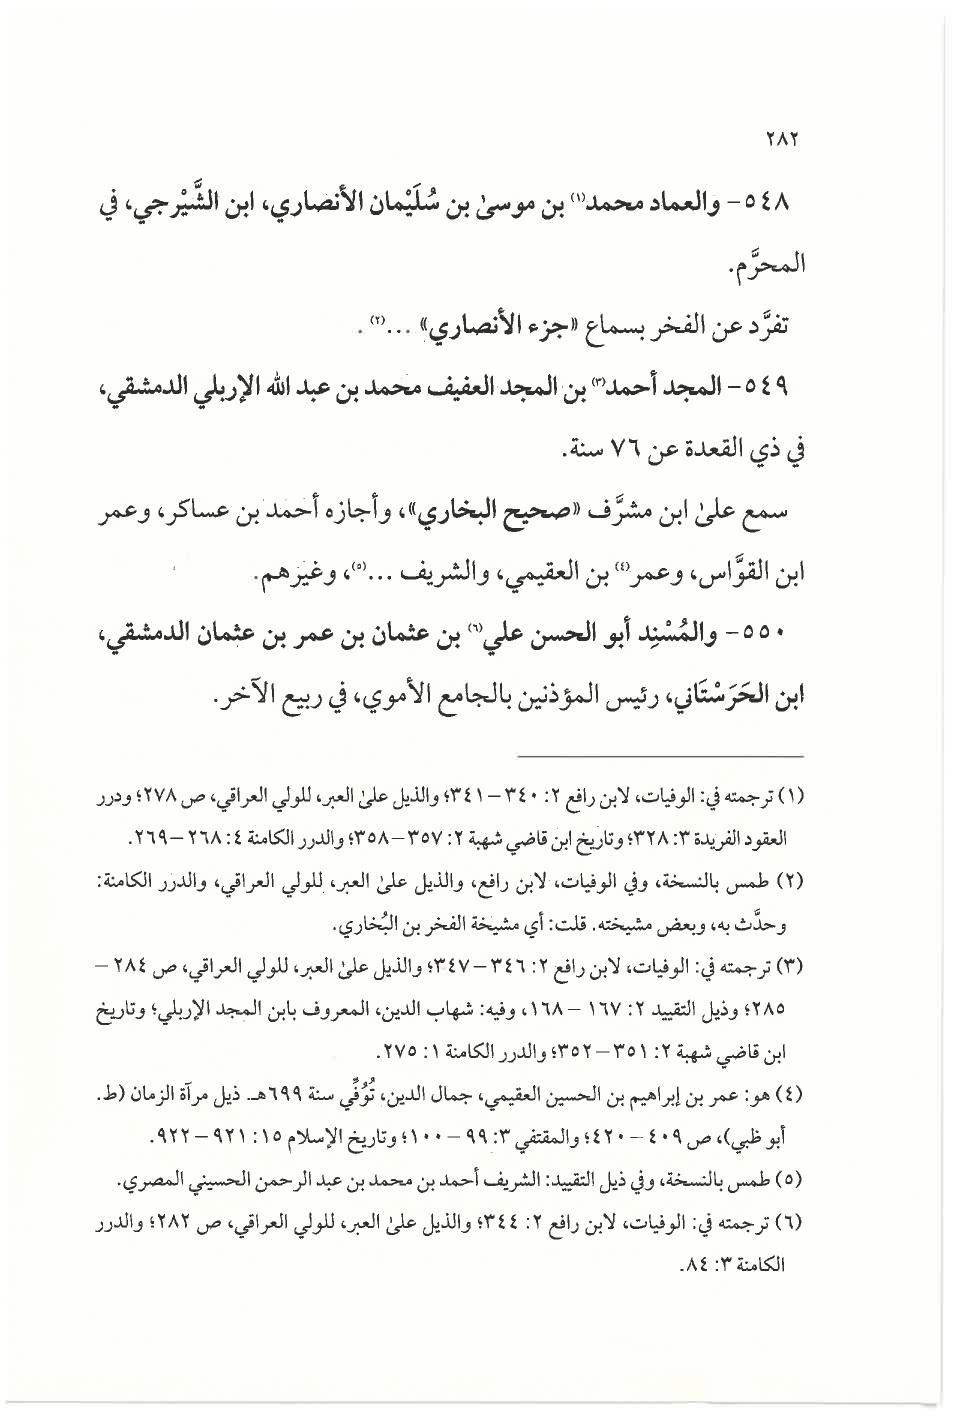 ٢٨٢
٥٤٨- والعماد محمد(١) بن موسىٰ بن سُلَيْمان الأنصاري، ابن الشَّيْرجي، في
المحرَّم.
تفرَّد عن الفخر بسماع «جزء الأنصاري» ...(٢) .
٥٤٩- المجد أحمد(٣) بن المجد العفيف محمد بن عبد الله الإربلي الدمشقي،
في ذي القعدة عن ٧٦ سنة.
سمع علىٰ ابن مشرَّف «صحيح البخاري»، وأجازه أحمد بن عساكر، وعمر
ابن القوَّاس، وعمر(٤) بن العقيمي، والشريف ...(٥)، وغيرهم.
٥٥٠- والمُسْنِد أبو الحسن علي(٦) بن عثمان بن عمر بن عثمان الدمشقي،
ابن الحَرَسْتَاني، رئيس المؤذنين بالجامع الأموي، في ربيع الآخر.
(١) ترجمته في: الوفيات، لابن رافع ٢: ٣٤٠–٣٤١؛ والذيل علىٰ العبر، للولي العراقي، ص ٢٧٨؛ ودرر
العقود الفريدة ٣: ٣٢٨؛ وتاريخ ابن قاضي شهبة ٢: ٣٥٧–٣٥٨؛ والدرر الكامنة ٤: ٢٦٨–٢٦٩.
(٢) طمس بالنسخة، وفي الوفيات، لابن رافع، والذيل علىٰ العبر، للولي العراقي، والدرر الكامنة:
وحدَّث به، وبعض مشيخته. قلت: أي مشيخة الفخر بن البُخاري.
(٣) ترجمته في: الوفيات، لابن رافع ٢: ٣٤٦–٣٤٧؛ والذيل علىٰ العبر، للولي العراقي، ص ٢٨٤ –
٢٨٥؛ وذيل التقييد ٢: ١٦٧ –١٦٨، وفيه: شهاب الدين، المعروف بابن المجد الإربلي؛ وتاريخ
ابن قاضي شهبة ٢: ٣٥١–٣٥٢؛ والدرر الكامنة ١: ٢٧٥.
(٤) هو: عمر بن إبراهيم بن الحسين العقيمي، جمال الدين، تُوُفِّي سنة ٦٩٩هـ. ذيل مرآة الزمان (ط.
أبو ظبي)، ص ٤٠٩ – ٤٢٠؛ والمقتفي ٣: ٩٩ –١٠٠؛ وتاريخ الإسلام ١٥: ٩٢١ –٩٢٢.
(٥) طمس بالنسخة، وفي ذيل التقييد: الشريف أحمد بن محمد بن عبد الرحمن الحسيني المصري.
(٦) ترجمته في: الوفيات، لابن رافع ٢: ٣٤٤؛ والذيل علىٰ العبر، للولي العراقي، ص ٢٨٢؛ والدرر
الكامنة ٣: ٨٤.